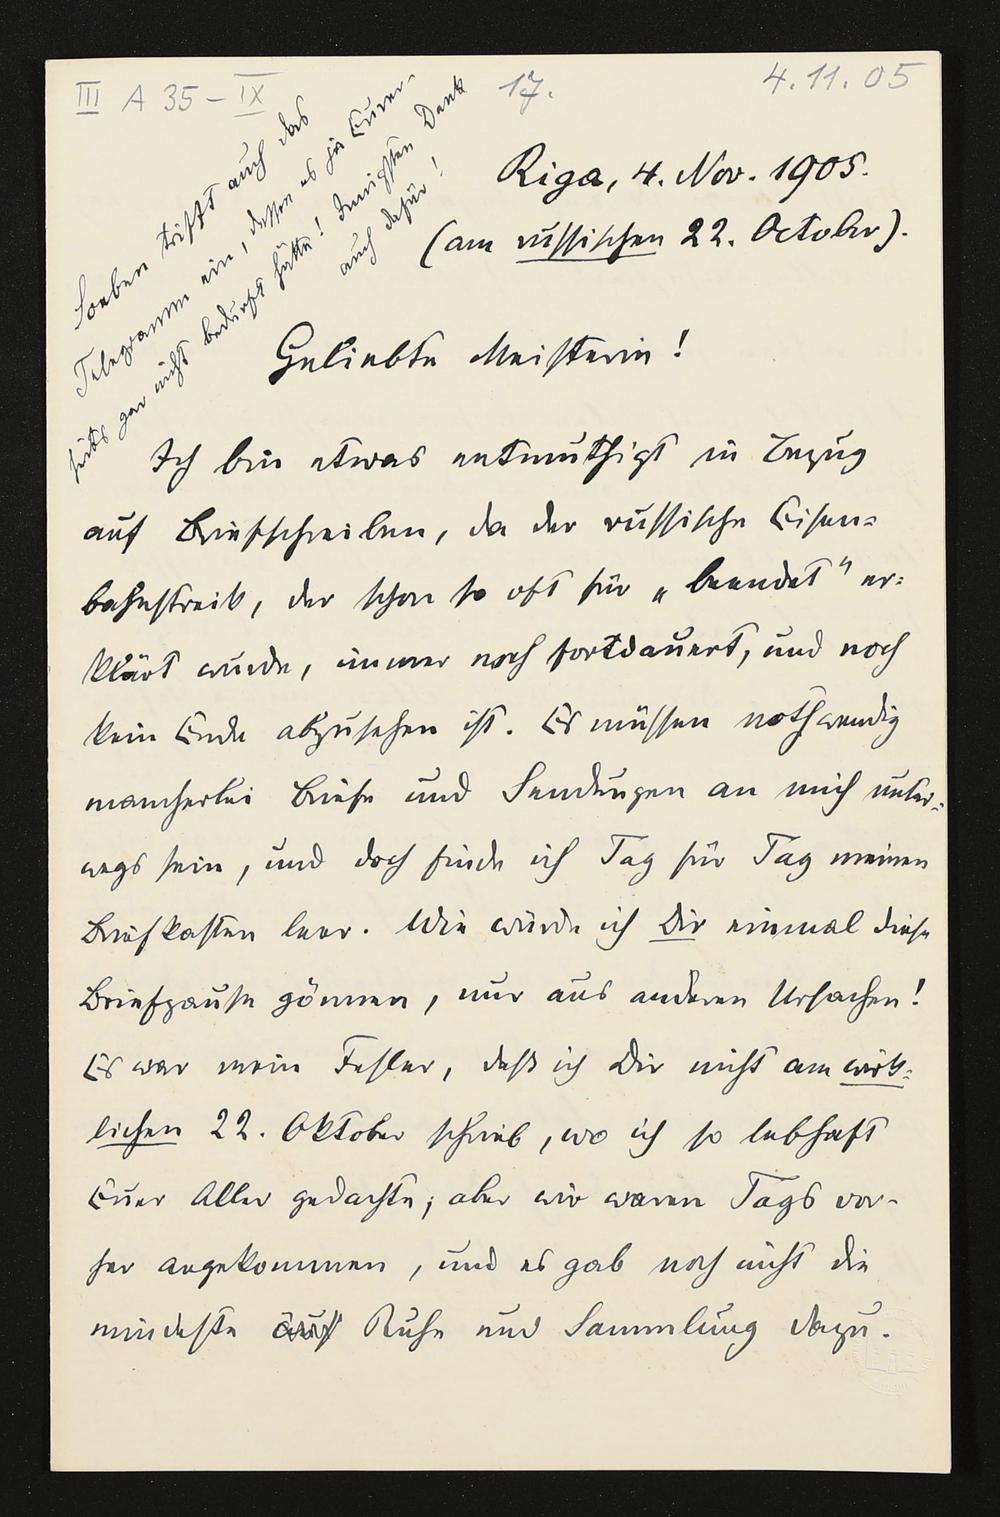 III A 35 – IX
17.
4.11.05
Soeben trifft auch das
Telegramm ein, dessen es ja Eurer-
seits gar nicht bedurft hätte! Innigsten Dank
auch dafür!
Riga, 4. Nov. 1905.
(am russischen 22. October).
Geliebte Meisterin!
Ich bin etwas entmuthigt in Bezug
auf Briefschreiben, da der russische Eisen-
bahnstreik, der schon so oft für „beendet" er-
klärt wurde, immer noch fortdauert, und noch
kein Ende abzusehen ist. Es müssen nothwendig
mancherlei Briefe und Sendungen an mich unter-
wegs sein, und doch finde ich Tag für Tag meinen
Briefkasten leer. Wie würde ich Dir einmal diese
Briefpause gönnen, nur aus anderen Ursachen!
Es war mein Fehler, daß ich Dir nicht am wirk-
lichen 22. Oktober schrieb, wo ich so lebhaft
Euer Aller gedachte; aber wir waren Tags vor-
her angekommen, und es gab noch nicht die
mindeste Ruhe und Sammlung dazu.